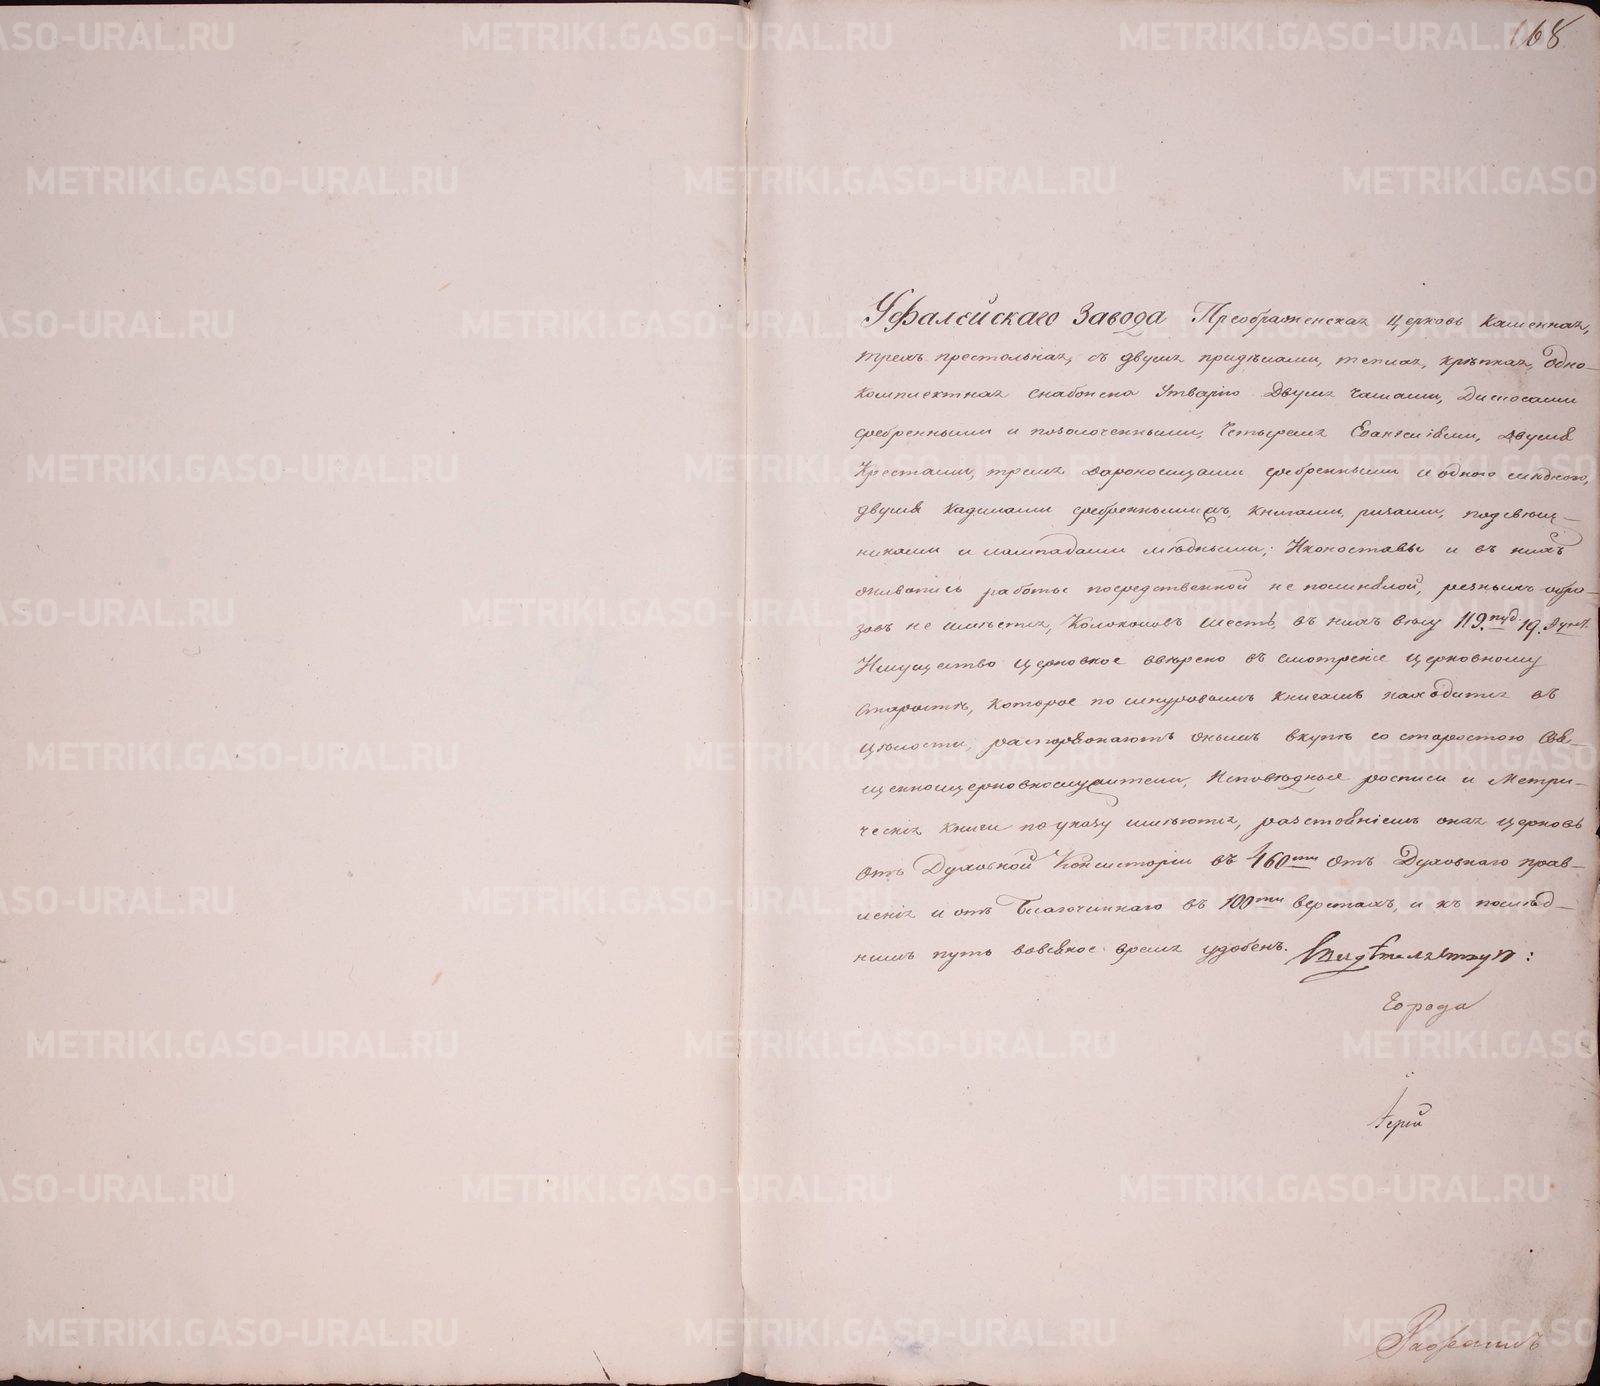 168
Уфалейскаго Завода Преображенская Церковь каменная,
трехъ-престольная, съ двумя придѣлами, теплая, крѣпкая, одно-
комплектная снабжена Утварію двумя чашами, Дискосами
сребренными и позолоченными, четырмя Евангеліями, двумя
Крестами, тремя дароносицами сребренными и одного мѣдного,
двумя кадилами сребренными, книгами, ризами, подсвѣщ-
никами и лампадами мѣдными; Иконоставы и въ нихъ
живопись работы посредственной не полинялой, резныхъ обра-
зовъ не имѣется, Колоколовъ шесть, въ нихъ вѣсу 119. пуд. 19. фунт.
Имущество церковное ввѣрено въ смотрѣніе церковному
старостѣ, которое по шнуровымъ книгамъ находится въ
цѣлости, распоряжаютъ онымъ вкупѣ со старостою Свя-
щенноцерковнослужители, Исповѣдныя росписи и Метри-
ческія книги по указу имѣются, разстояніемъ оная церковь
отъ Духовной Консисторіи въ 460ти отъ Духовнаго прав-
ленія и отъ Благочиннаго въ 100ти верстахъ, и къ послѣд-
нимъ путь вовсякое время удобенъ.
города
Іерей
METRIKI.GASO-URAL.RU